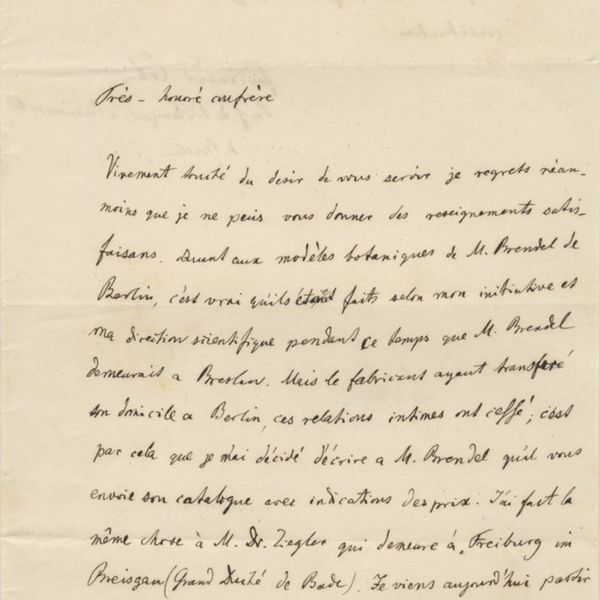 Très-honoré confrère
Vivement touché du desir de vous servir je regrets néan-
moins que je ne peus vous donner des reseignements satis-
faisans. Quant aux modèles botaniques de M. Brendel de
Berlin, c'est vrai qu'ils faits selon mon initiative et
ma direction scientifique pendant ce temps que M. Brendel
demeurait a Breslau. Mais le fabricant ayant transferé
son domicile a Berlin, ces relations intimes ont cessé; c'est
par cela que je m'ai décidé d'écrire a M. Brendel qu'il vous
envoie son catalogue avec indications des prix. J'ai fait la
même chose à M. Dr. Ziegler qui demeure à Freiburg im
Breisgau (Grand Duché de Bade). Je viens aujourd'hui partir